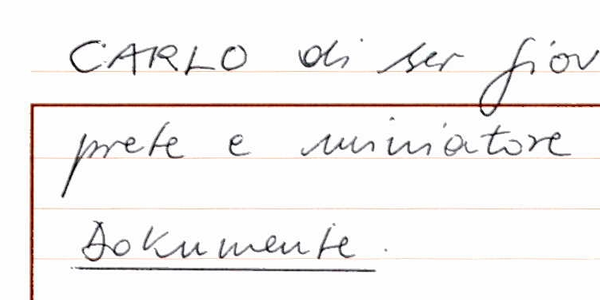 CARLO di ser giov
prete e miniatore
Dokumente.